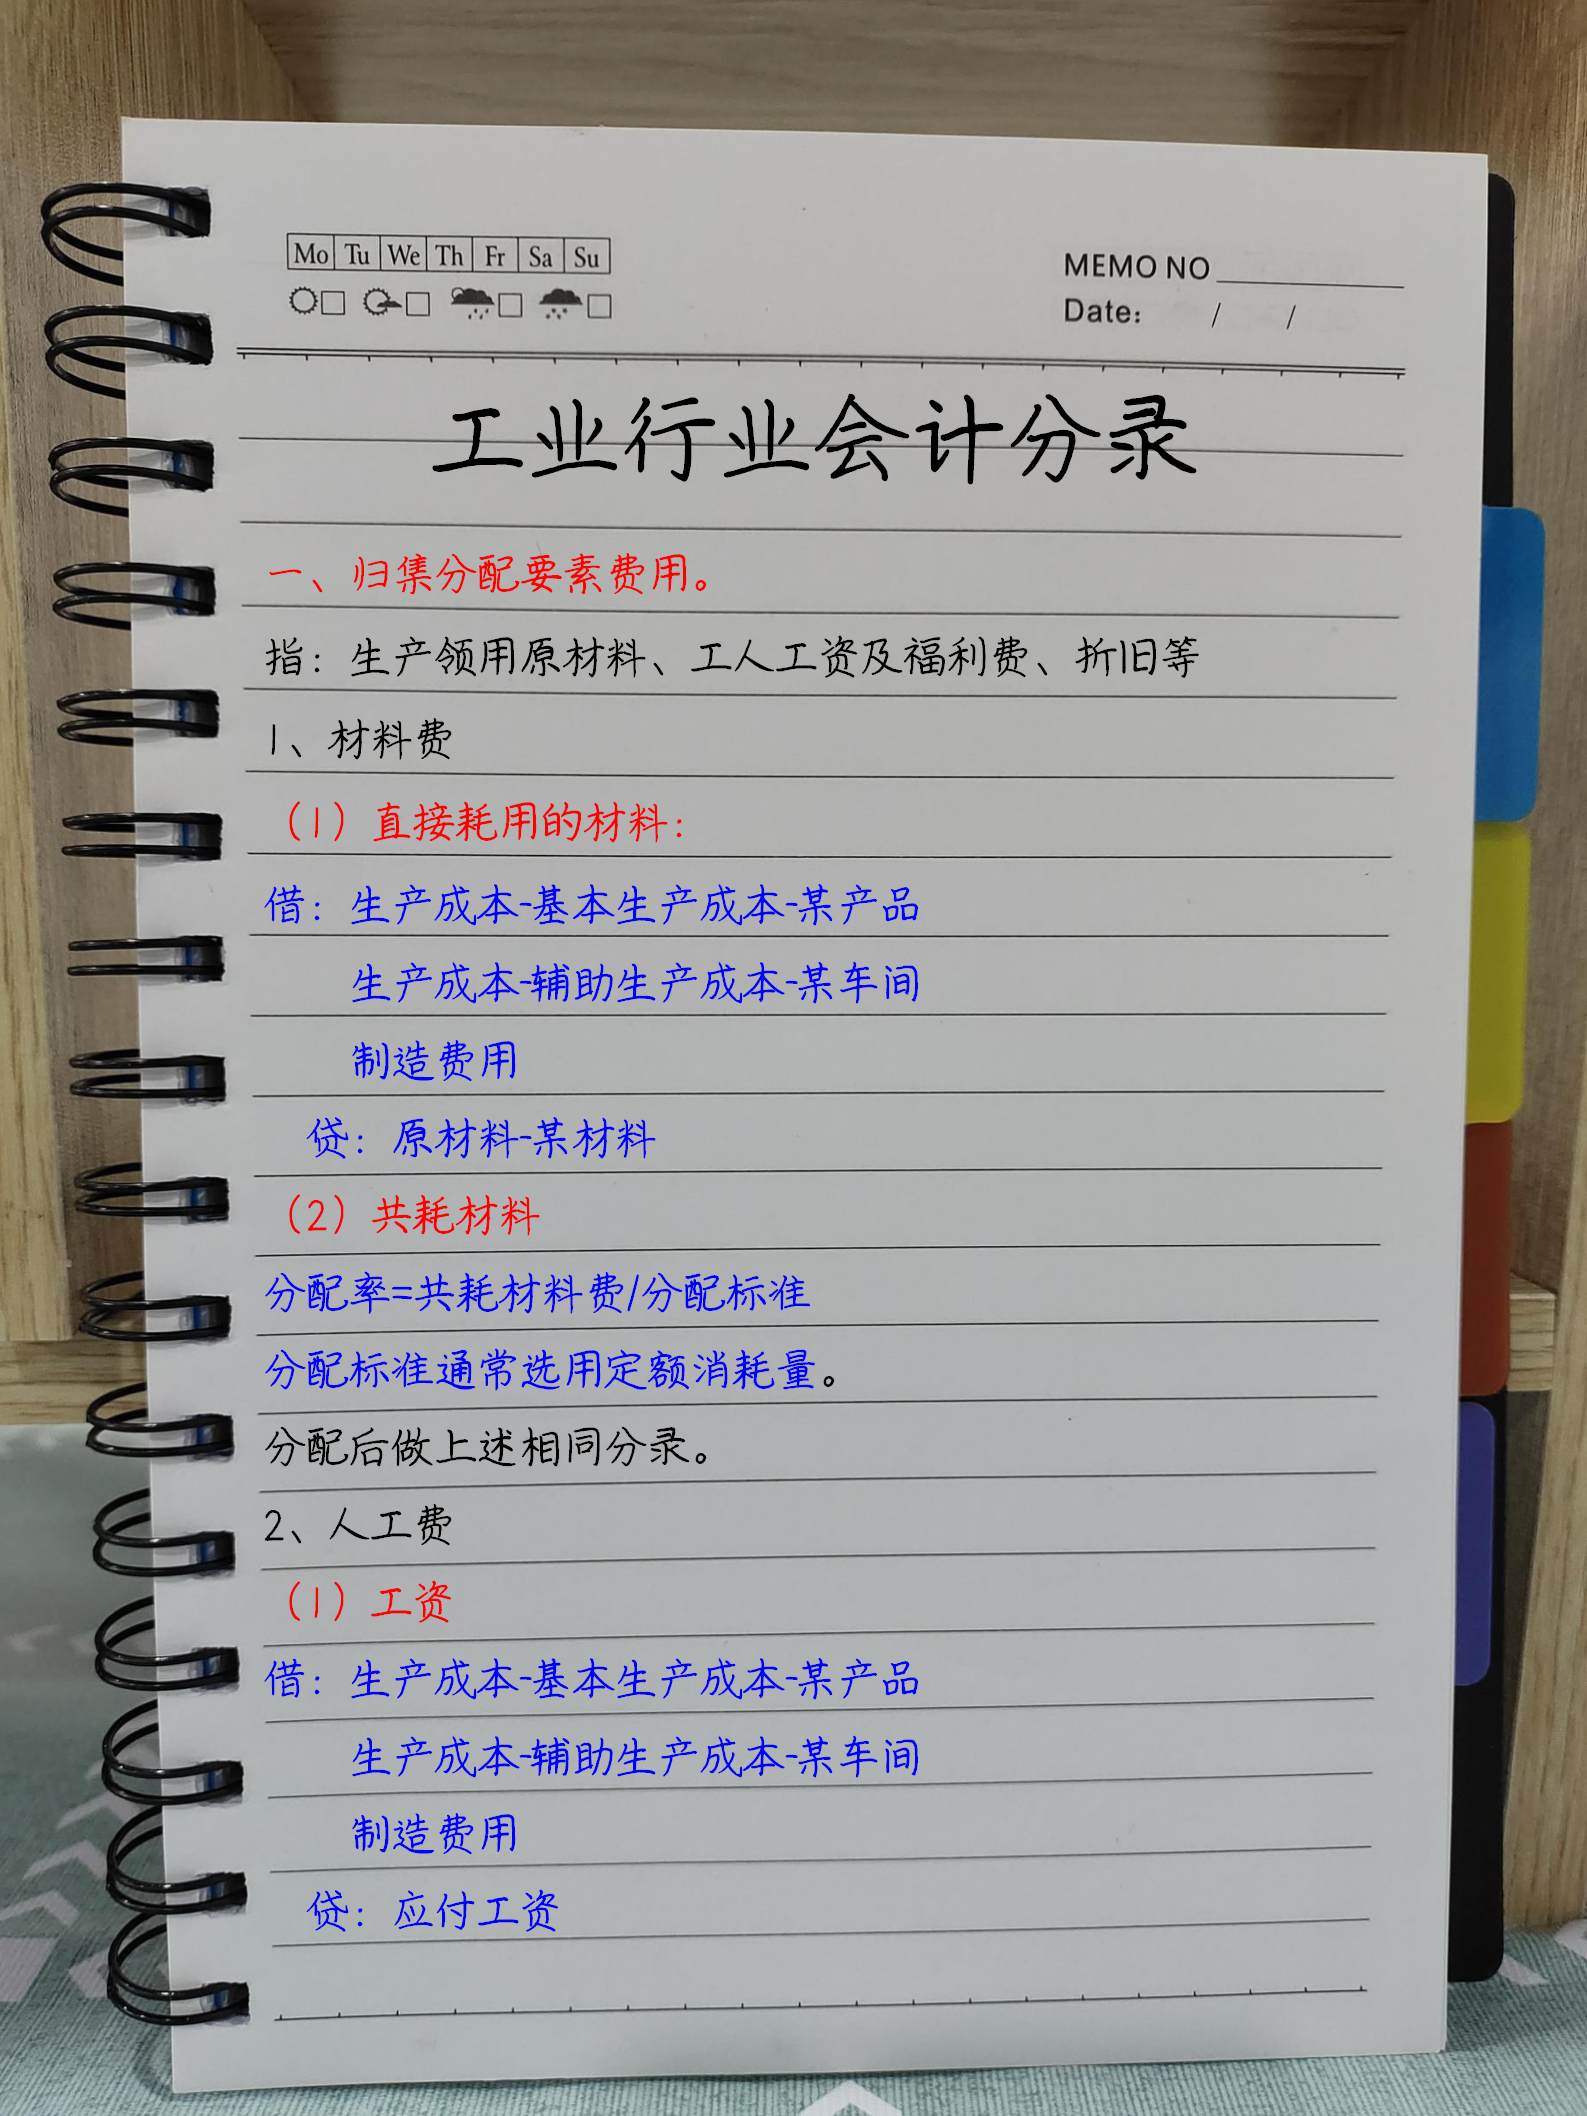 Mo Tu We Th Fr Sa Su
MEMO NO
Date: / /
工业行业会计分录
一、归集分配要素费用。
指：生产领用原材料、工人工资及福利费、折旧等
1、材料费
（1）直接耗用的材料：
借：生产成本-基本生产成本-某产品
生产成本-辅助生产成本-某车间
制造费用
贷：原材料-某材料
（2）共耗材料
分配率=共耗材料费/分配标准
分配标准通常选用定额消耗量。
分配后做上述相同分录。
2、人工费
（1）工资
借：生产成本-基本生产成本-某产品
生产成本-辅助生产成本-某车间
制造费用
贷：应付工资